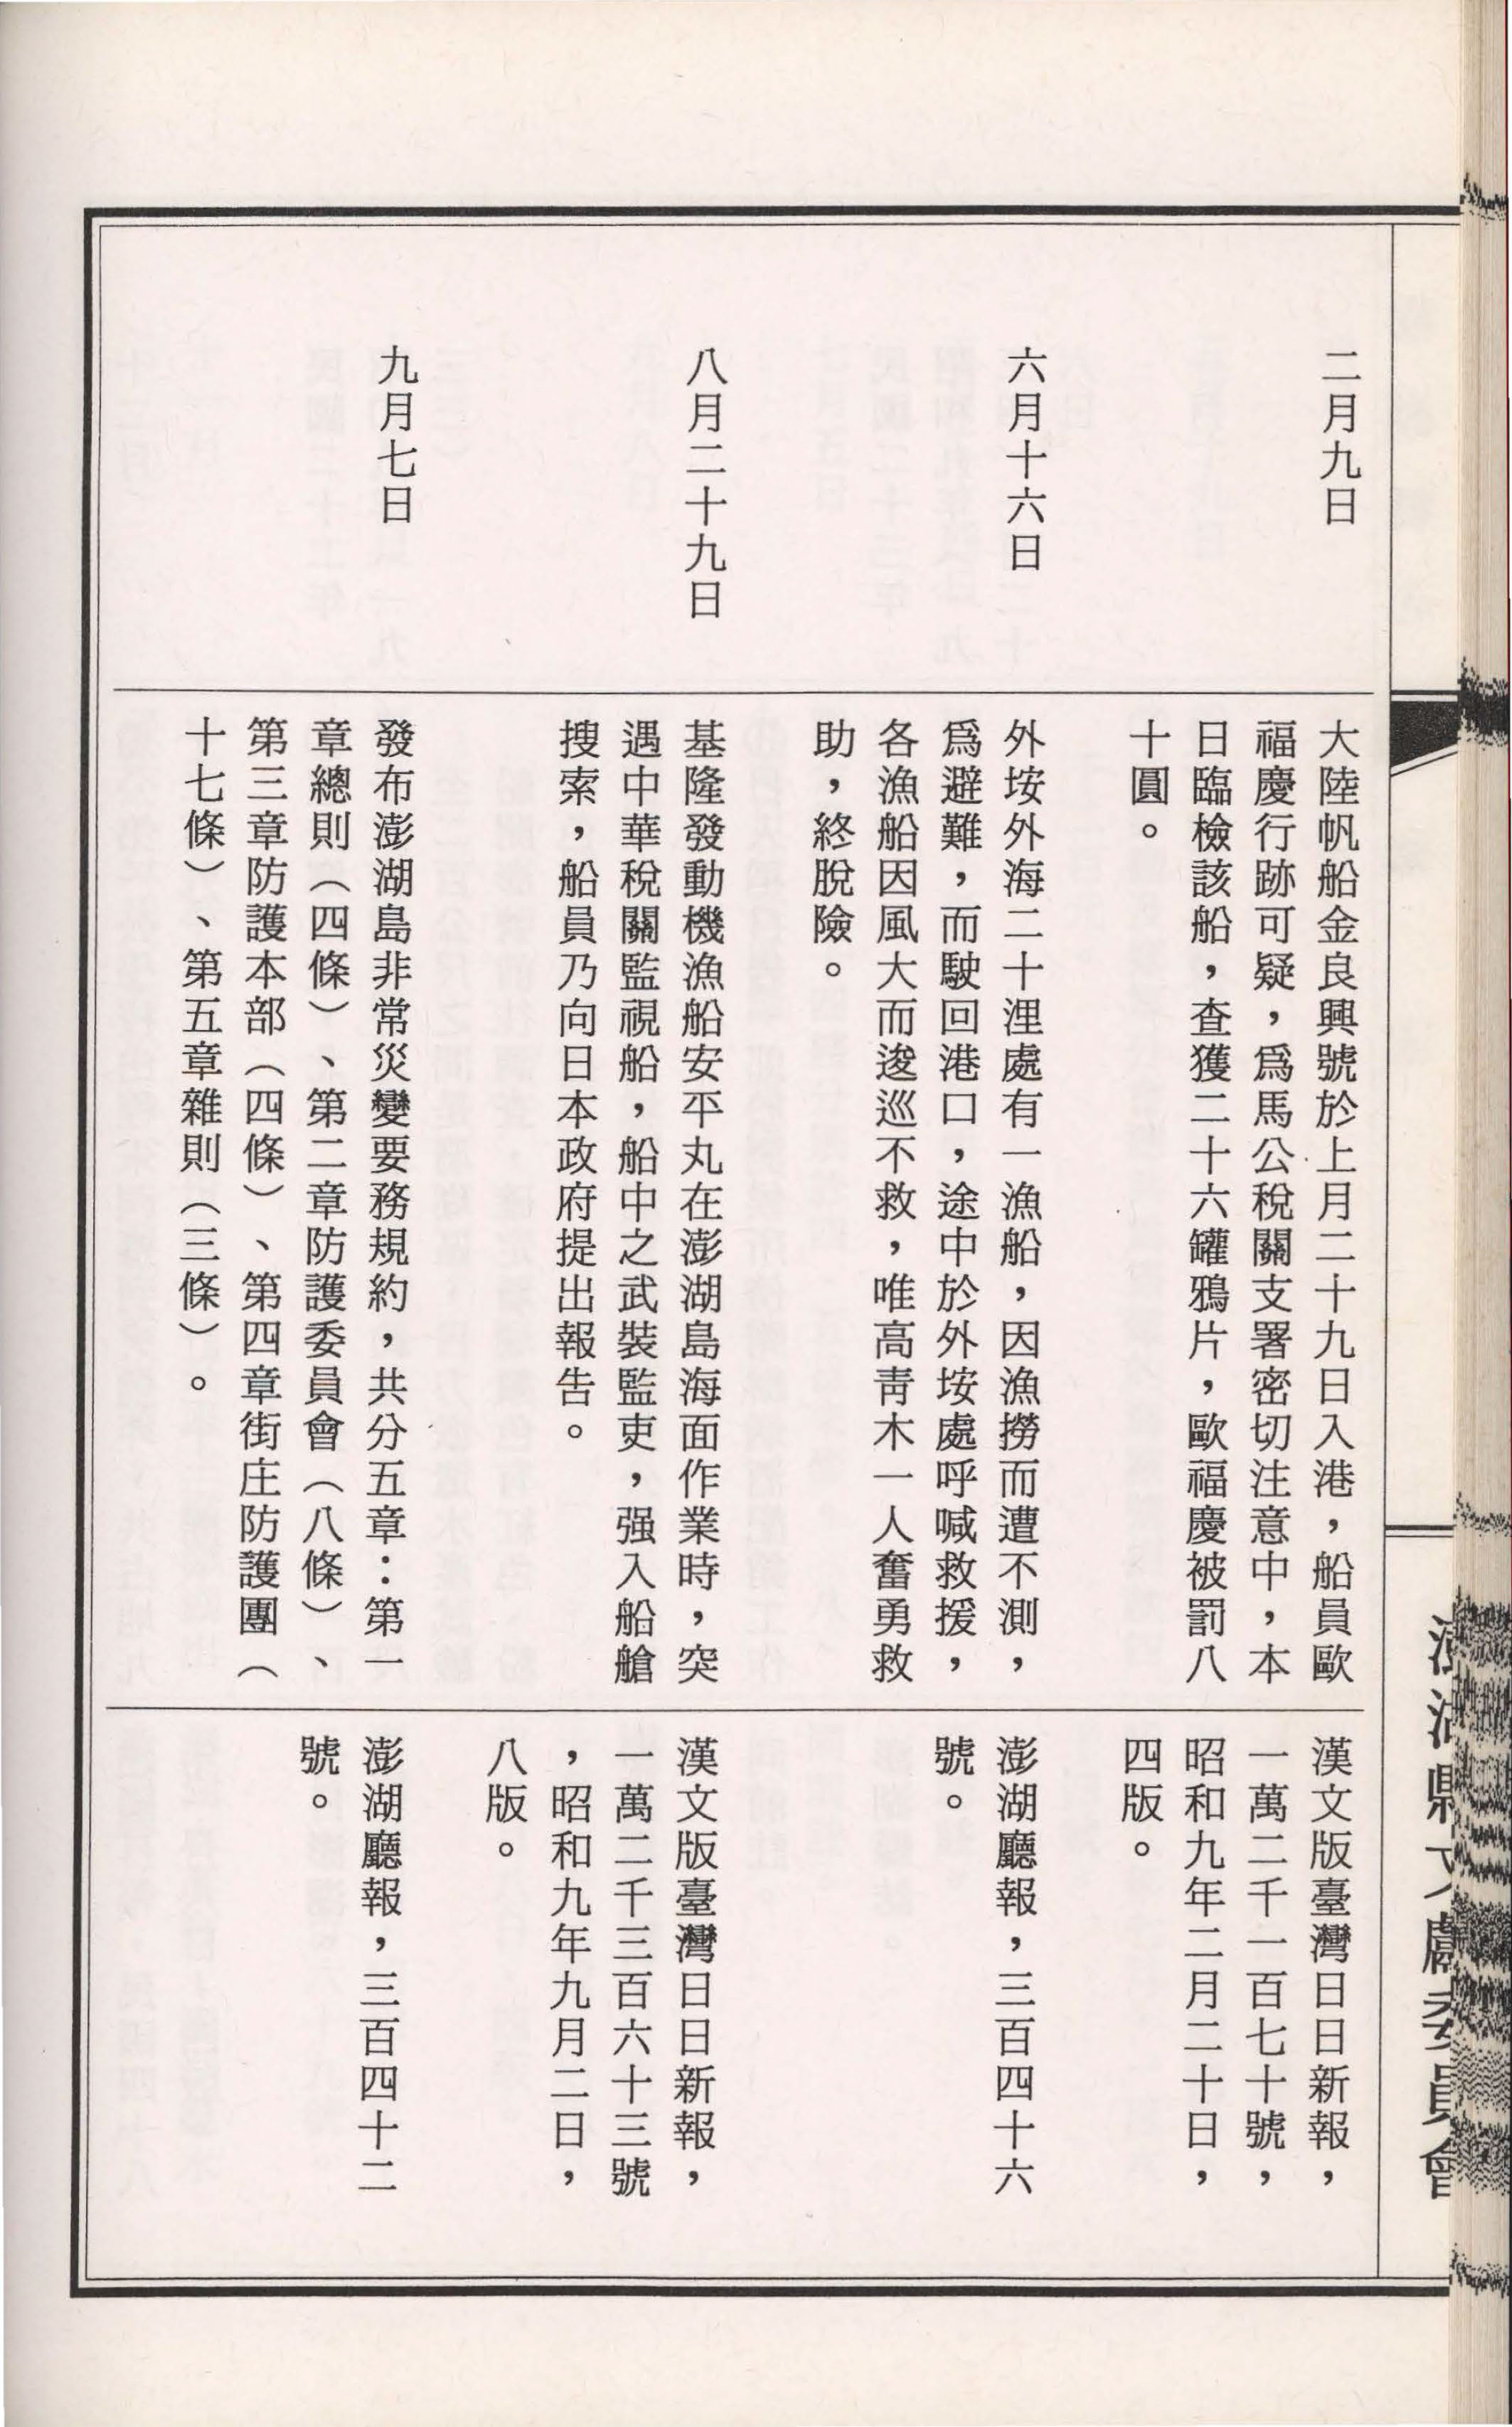 澎湖縣文獻委員會
二月九日
大陸帆船金良興號於上月二十九日入港，船員歐
福慶行跡可疑，爲馬公稅關支署密切注意中，本
日臨檢該船，查獲二十六罐鴉片，歐福慶被罰八
十圓。
漢文版臺灣日日新報，
一萬二千一百七十號，
昭和九年二月二十日，
四版。
六月十六日
外垵外海二十浬處有一漁船，因漁撈而遭不測，
爲避難，而駛回港口，途中於外垵處呼喊救援，
各漁船因風大而逡巡不救，唯高靑木一人奮勇救
助，終脫險。
澎湖廳報，三百四十六
號。
八月二十九日
基隆發動機漁船安平丸在澎湖島海面作業時，突
遇中華稅關監視船，船中之武裝監吏，强入船艙
搜索，船員乃向日本政府提出報告。
漢文版臺灣日日新報，
一萬二千三百六十三號
，昭和九年九月二日，
八版。
九月七日
發布澎湖島非常災變要務規約，共分五章：第一
章總則（四條）、第二章防護委員會（八條）、
第三章防護本部（四條）、第四章街庄防護團（
十七條）、第五章雜則（三條）。
澎湖廳報，三百四十二
號。